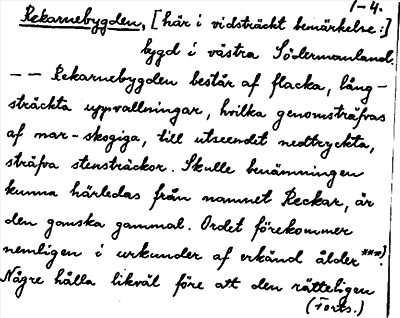 1-4.
Rekarnebygden, [här i vidsträckt bemärkelse:]
bygd i västra Södermanland.
-- Rekarnebygden består af flacka, lång-
sträckta uppvallningar, hvilka genomsträfvas
af mar-skogiga, till utseendet nedtryckta,
sträfva stensträckor. Skulle benämningen
kunna härledas från namnet Reckar, är
den ganska gammal. Ordet förekommer
nemligen i urkunder af erkänd ålder***).
Någre hålla likväl före att den rätteligen
(Forts.)